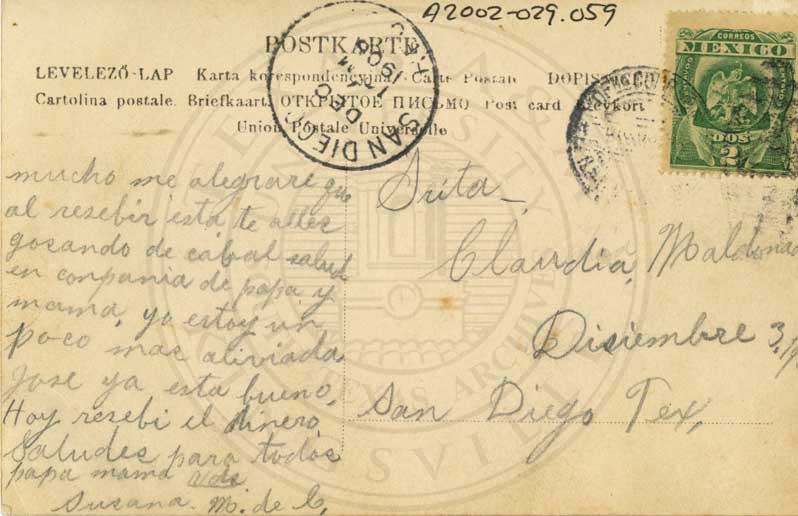 A2002-029.059
POSTKARTE
LEVELEZŐ-LAP Karta korespondencyjna Carte Postale DOPIS
Cartolina postale. Briefkaart. ОТКРЫТОЕ ПИСЬМО Post card
Union Postale Universelle
SAN DIEGO
DEC
CORREOS
MEXICO
DOS
2
mucho me alegrare que
al resebir esta te alles
gosando de cabal salud
en conpania de papa y
mama, yo estoy un
poco mas aliviada
Jose ya esta bueno,
Hoy resebi el dinero
Saludes para todos
papa mama
Susana. M. de C,
Srita
Claudia, Maldonado
Disiembre 3,
San Diego Tex,